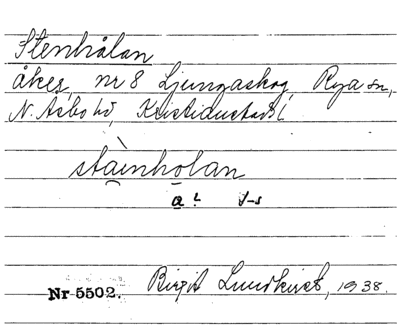 Stenhålan
åker, nr 8 Ljungaskog, Rya sn,
N. Åsbo hd, Kristianstads l
stàinhọlan
a
Nr 5502. Birgit Lundkvist, 1938.